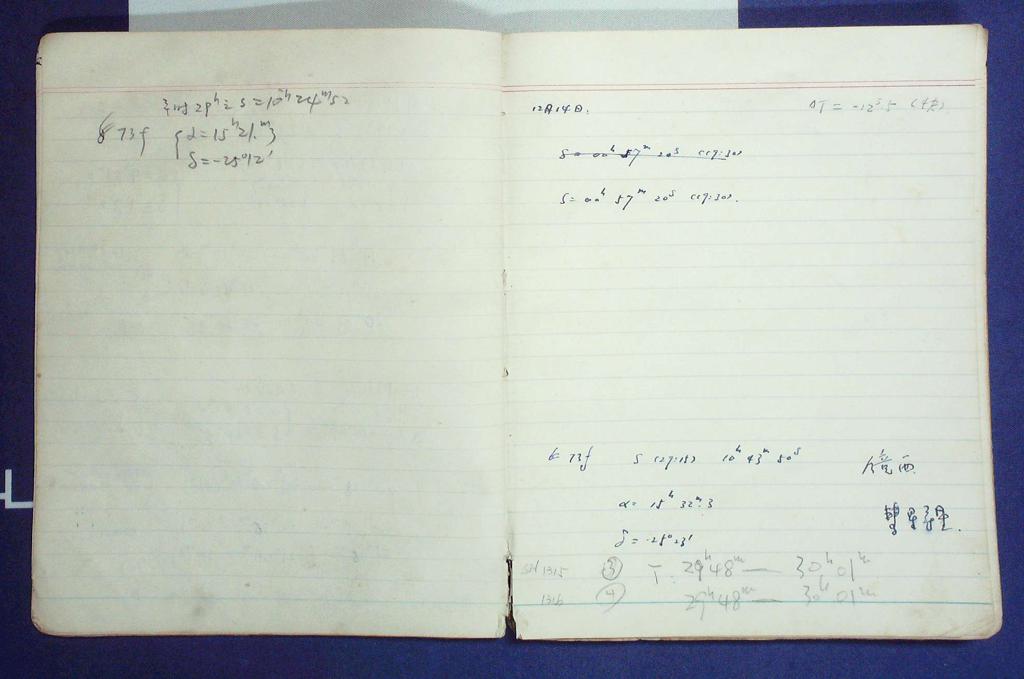 29ʰ S=10ʰ24ᵐ52
73f { α=15ʰ21.ᵐ }
δ=-25°12′
12月14日. ΔT = -12ˢ.5
S=00ʰ 57ᵐ 20ˢ (19:30)
S=00ʰ 57ᵐ 20ˢ (19:30).
73f S (29:15) 10ʰ 43ᵐ 50ˢ 镜西
α= 15ʰ 32ᵐ.3
δ= -25°23′
SH 1315 ③ T: 29ʰ48ᵐ — 30ʰ01ᵐ
1316 ④ 29ʰ48ᵐ — 30ʰ01ᵐ